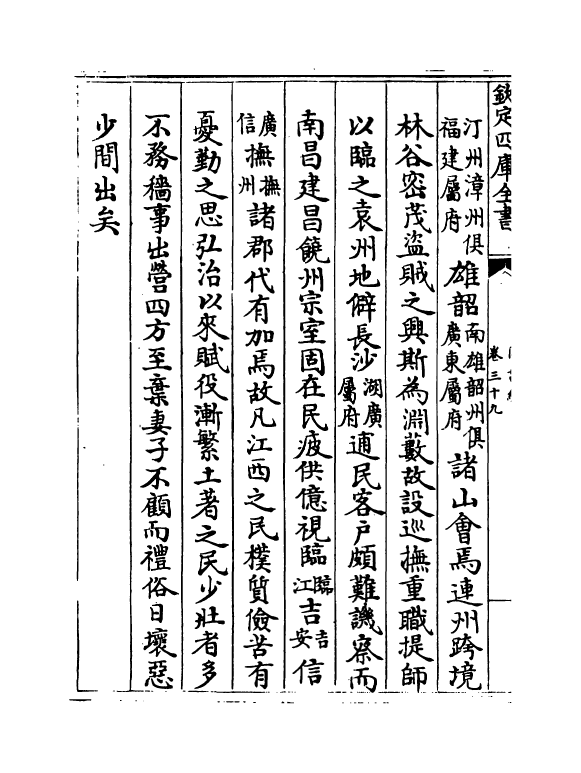 欽定四庫全書
卷三十九
汀州漳州俱福建屬府雄韶南雄韶州俱廣東屬府諸山會焉連州跨境
林谷密茂盜賊之興斯為淵藪故設巡撫重職提師
以臨之袁州地僻長沙湖廣屬府逋民客户頗難譏察而
南昌建昌饒州宗室固在民疲供億視臨臨江吉吉安信
廣信撫撫州諸郡代有加焉故凡江西之民樸質儉苦有
憂勤之思弘治以來賦役漸繁土著之民少壯者多
不務穡事出營四方至棄妻子不顧而禮俗日壞惡
少間出矣